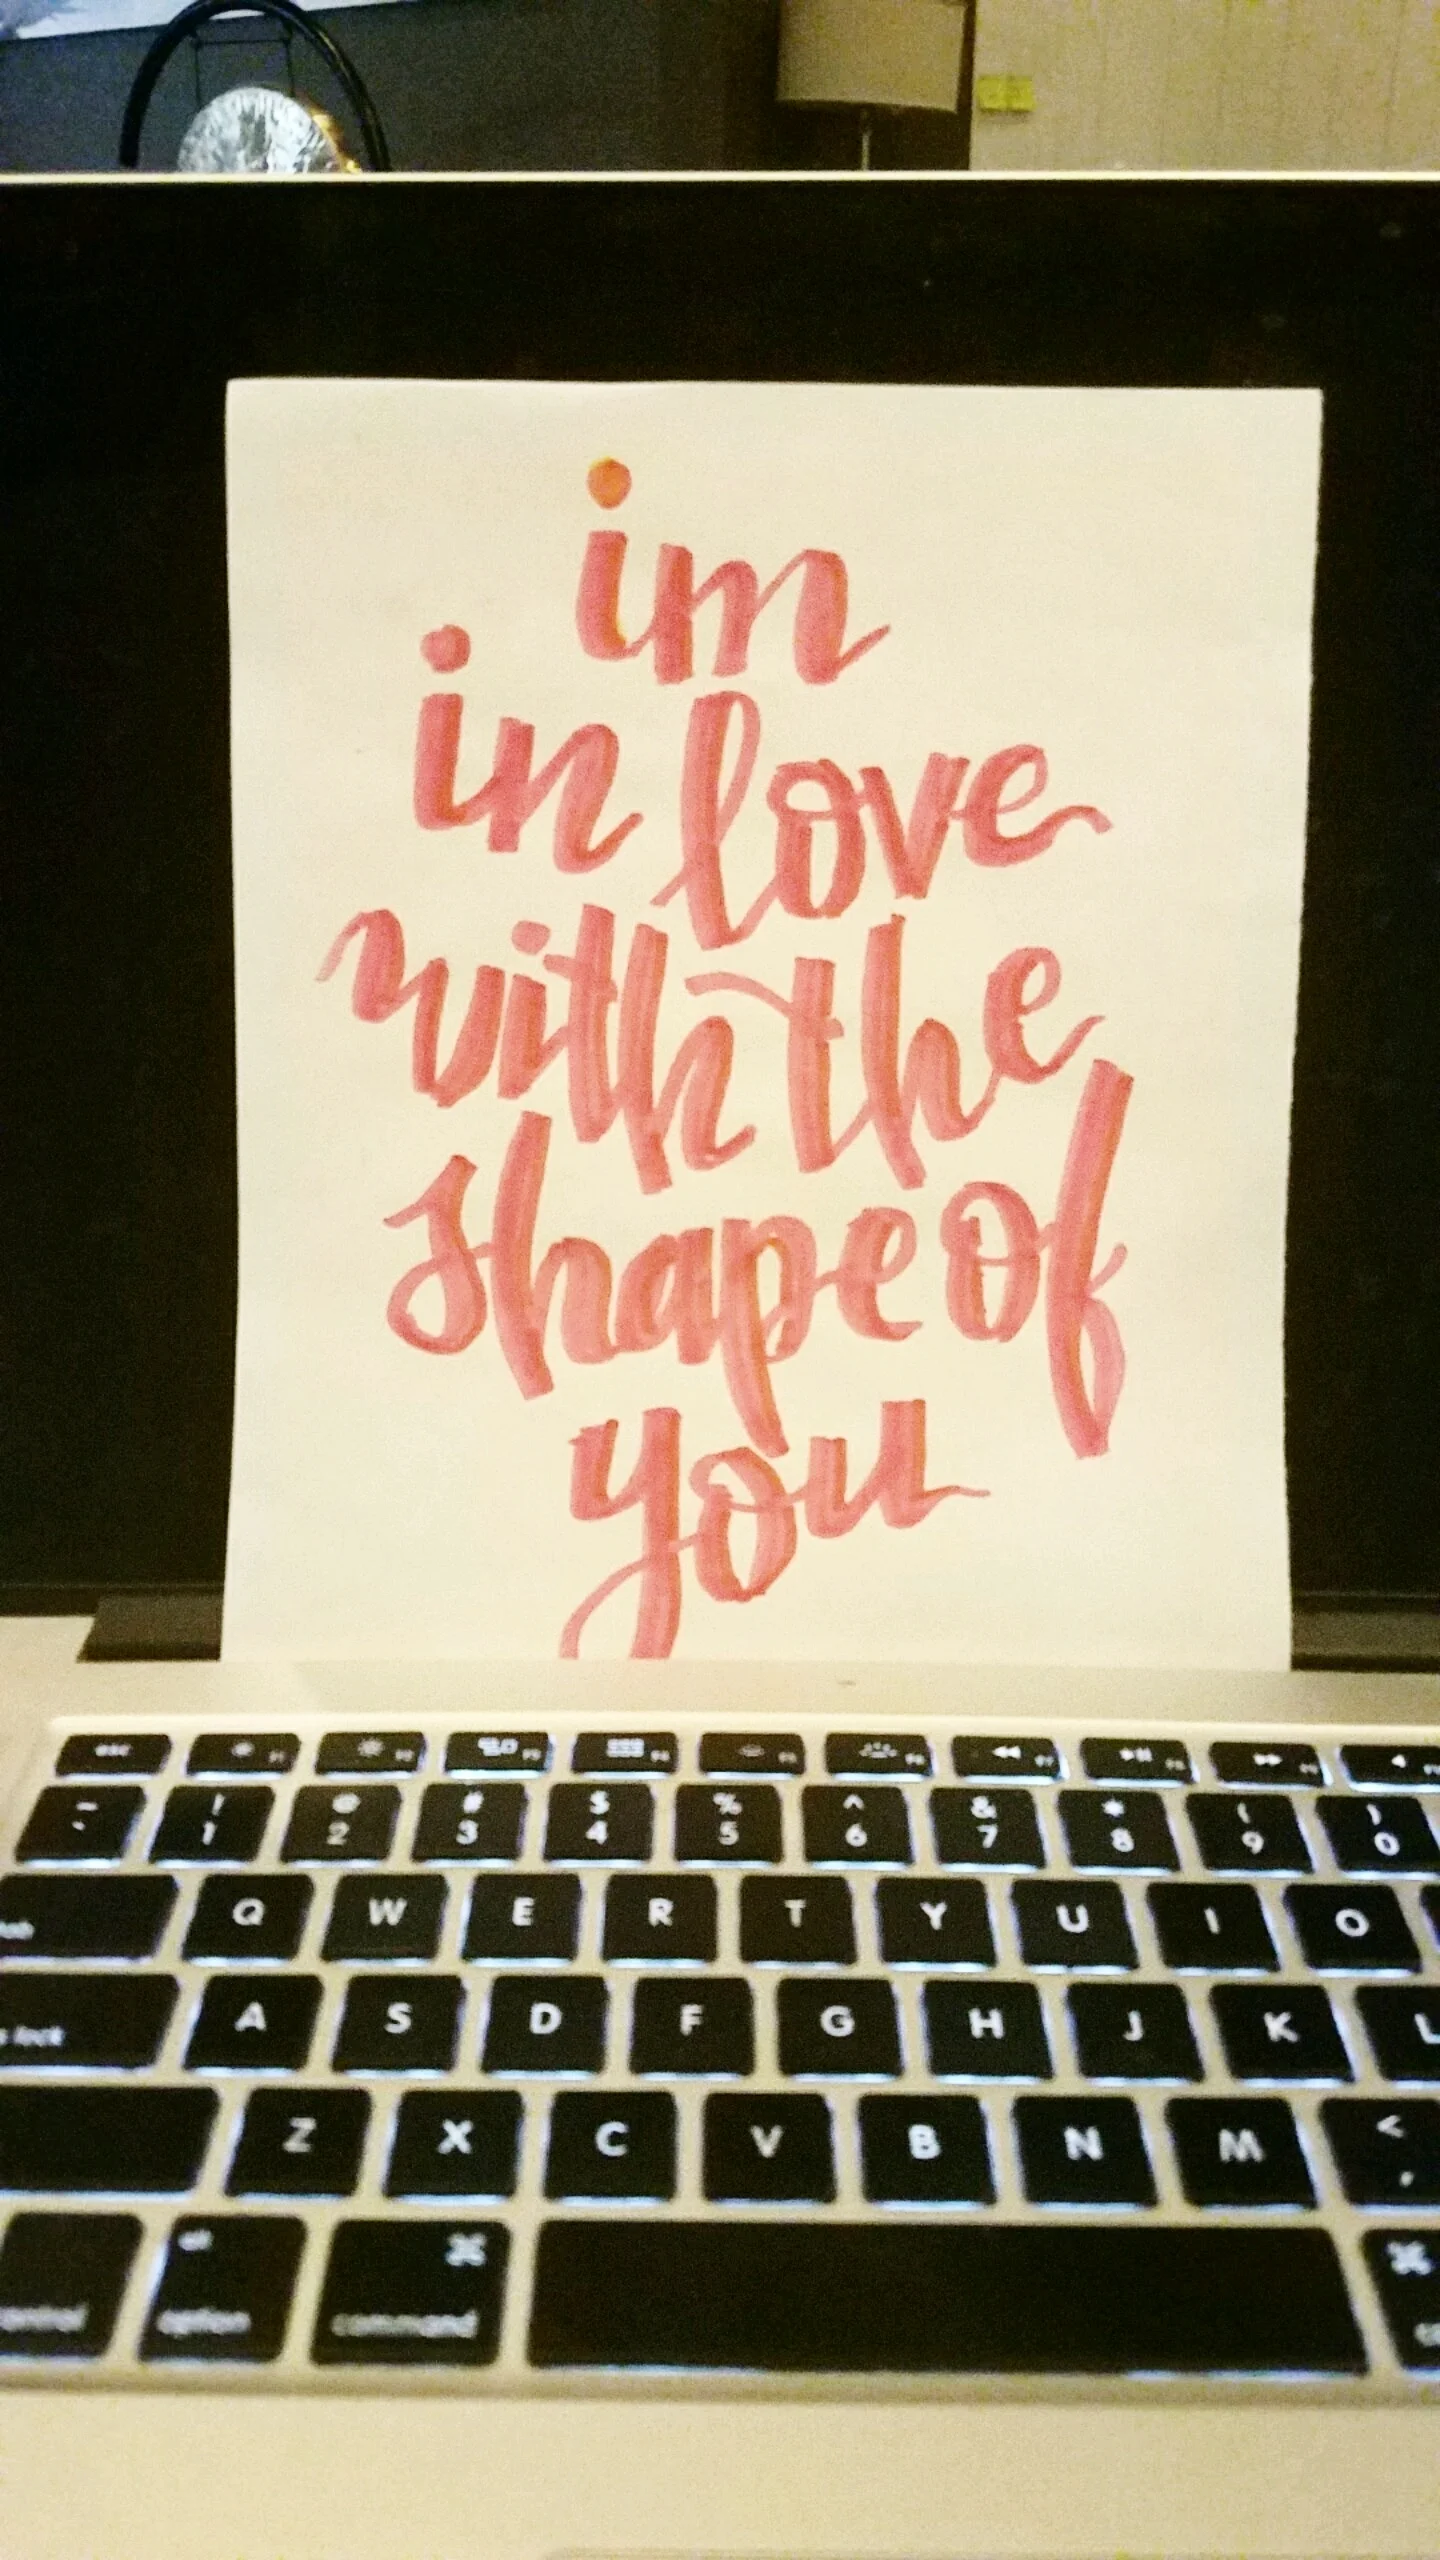 im
in love
with the
shape of
you
esc F1 F2 F3 F4 F5 F6 F7 F8
~ ` ! 1 @ 2 # 3 $ 4 % 5 ^ 6 & 7 * 8 ( 9 ) 0
Q W E R T Y U I O
lock A S D F G H J K L
Z X C V B N M < ,
alt option ⌘ command ⌘